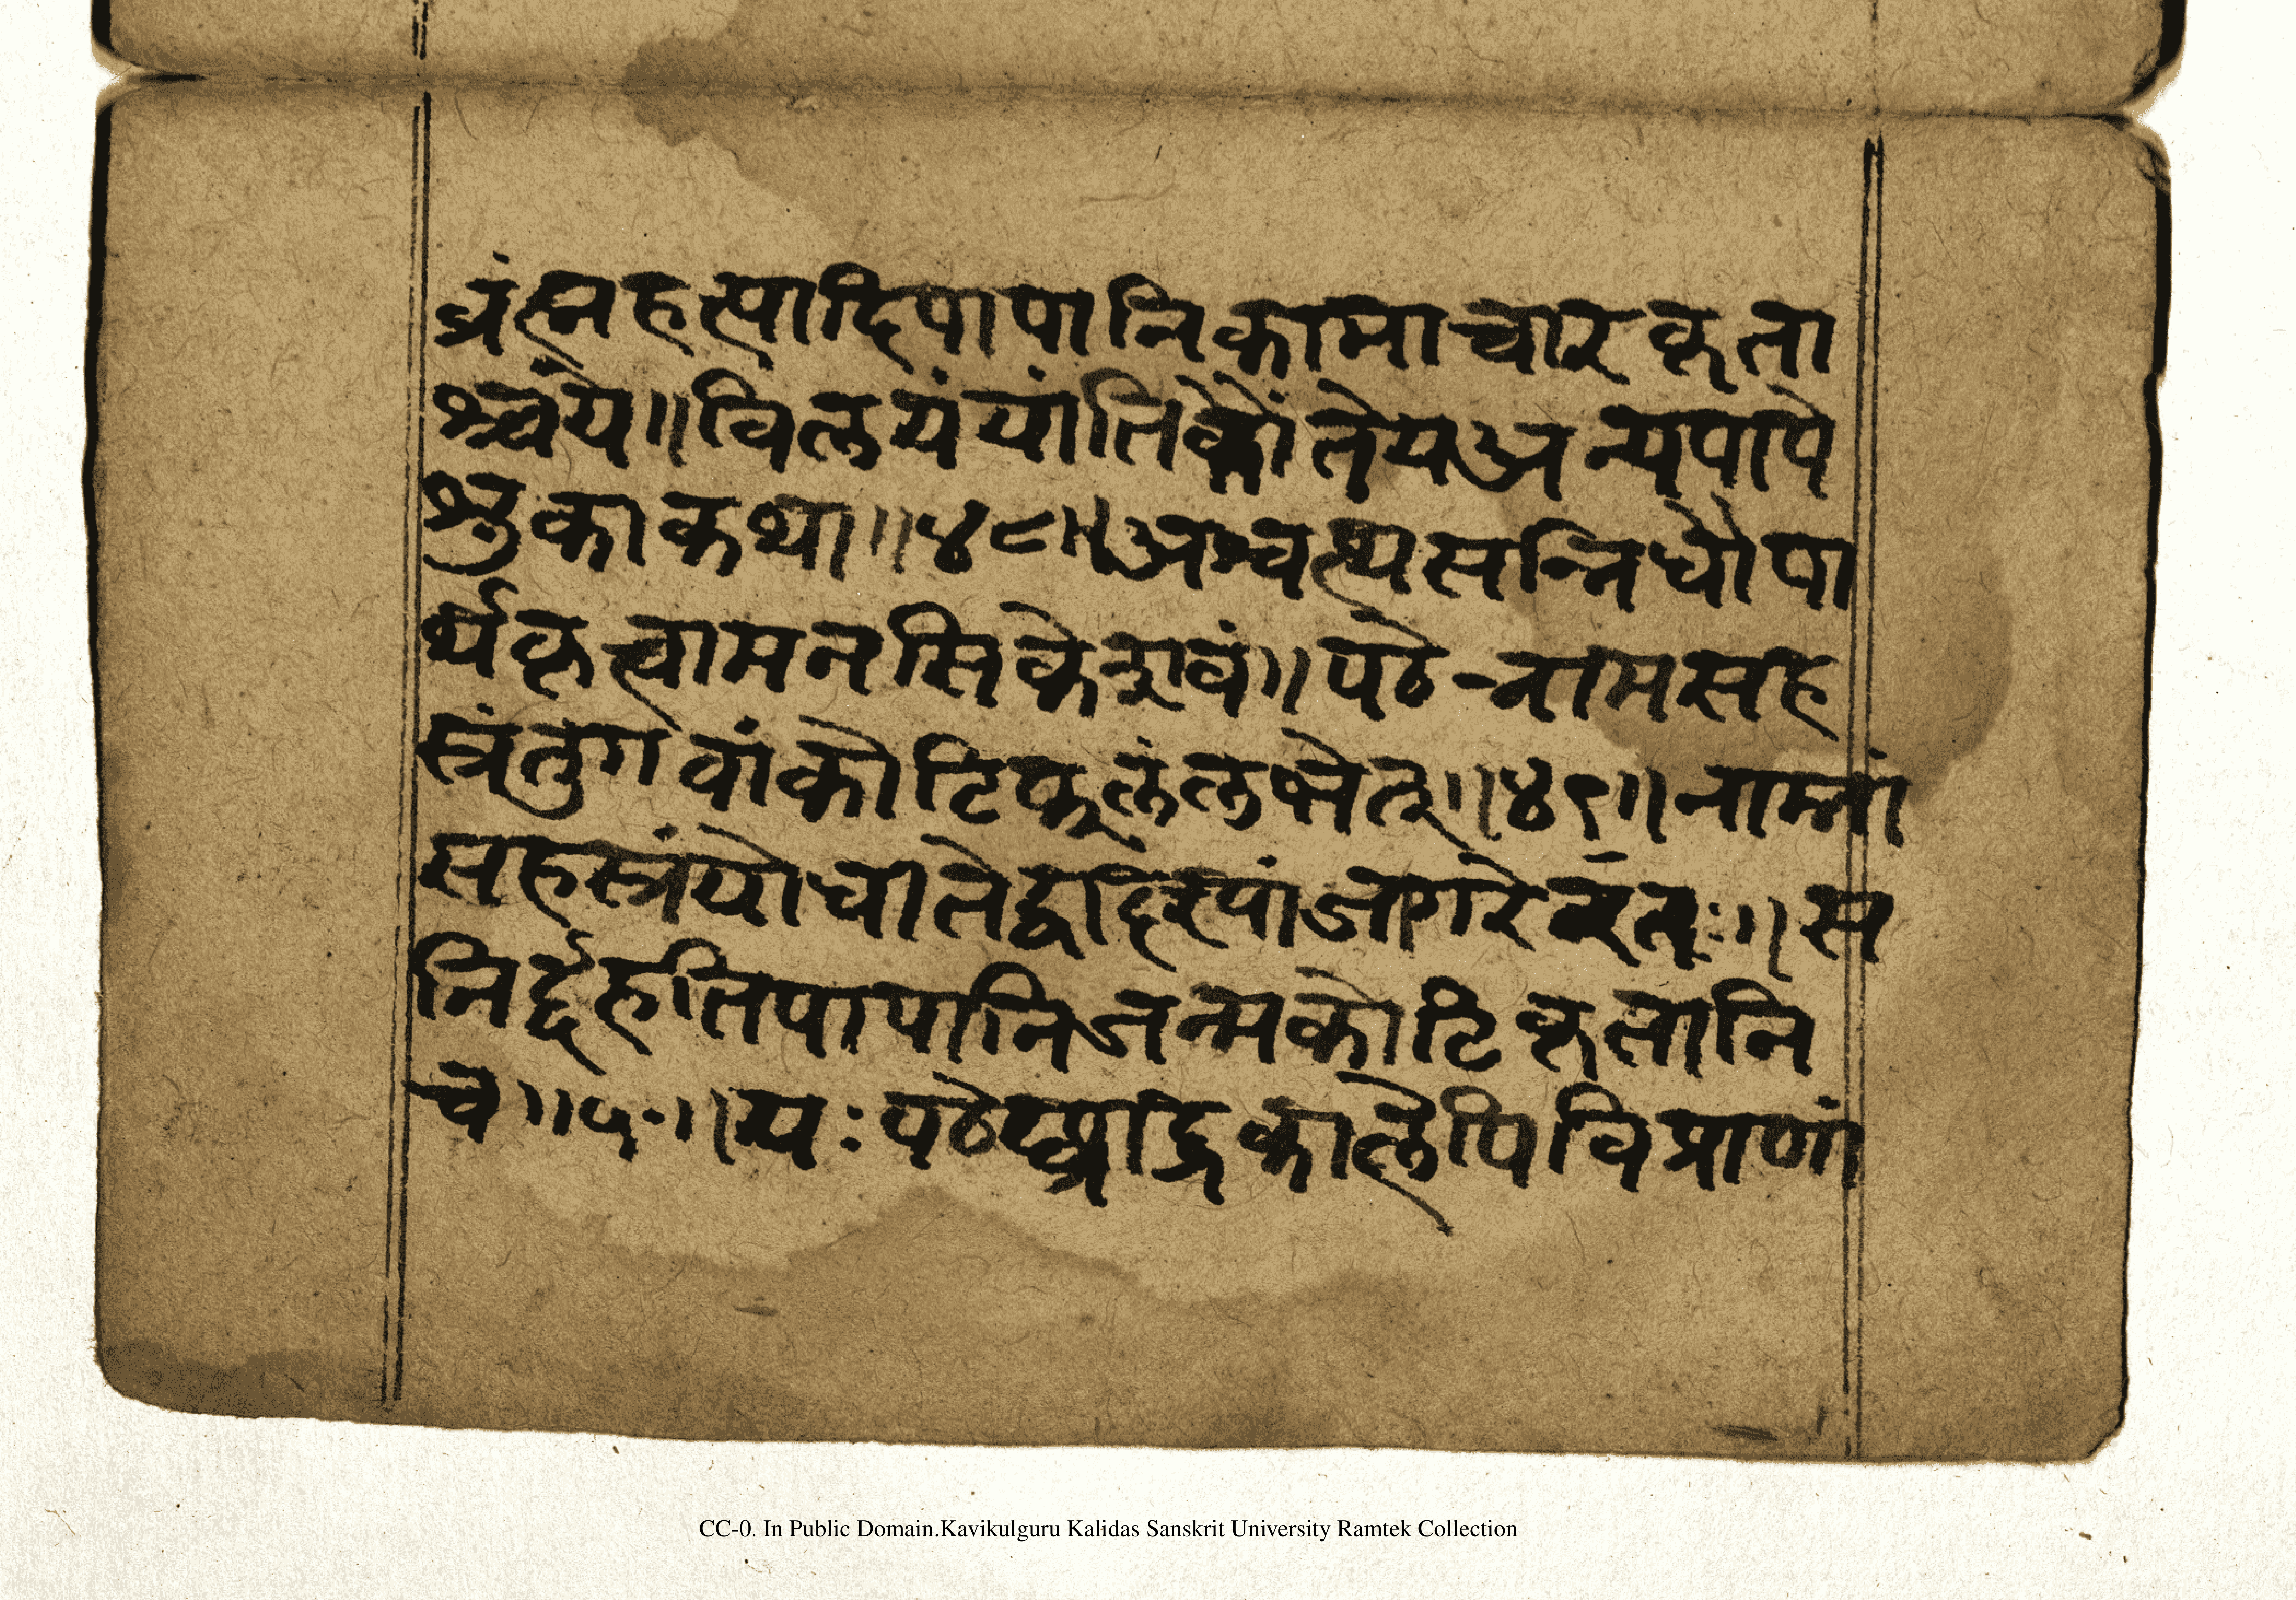 ब्रंह्महत्यादिपापानिकामाचारकृता
श्चंये॥विलयंयांतिकौंतेयअन्यपापे
श्रुकाकथा॥४८॥अश्वत्थसन्निधौपा
र्थकृत्वामनसिकेशवं॥पठेन्नामसह
स्त्रंतुगवांकोटिफलंलभेत्॥४९॥नाम्नां
सहस्त्रंयोधीतेद्वादश्यांजागरेव्रतः॥स
निर्द्दहतिपापानिजन्मकोटिकृतानि
च॥५०॥यःपठेछ्राद्धकालेपिविप्राणां
CC-0. In Public Domain.Kavikulguru Kalidas Sanskrit University Ramtek Collection